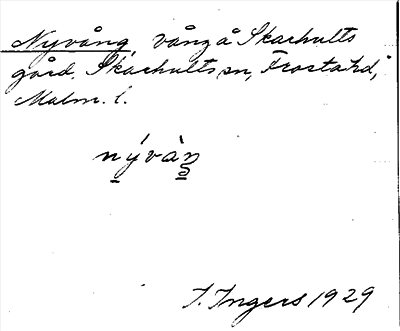 Nyvång, vång å Skarhults
gård, Skarhults sn, Frosta hd,
Malm. l.
nývàṉ
I. Ingers 1929